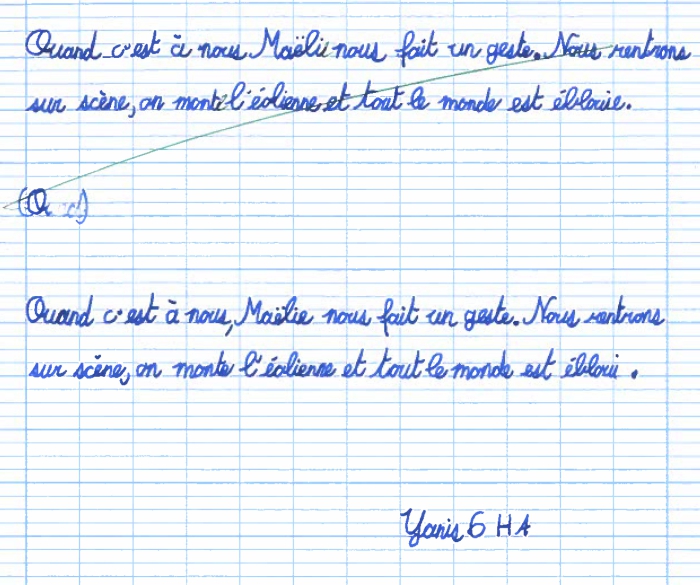 Quand c'est à nous Maëlie nous fait un geste. Nous rentrons
sur scène, on monte l'éolienne et tout le monde est éblouie.
Quand c'est à nous, Maëlie nous fait un geste. Nous rentrons
sur scène, on monte l'éolienne et tout le monde est ébloui.
Yanis 6 HA